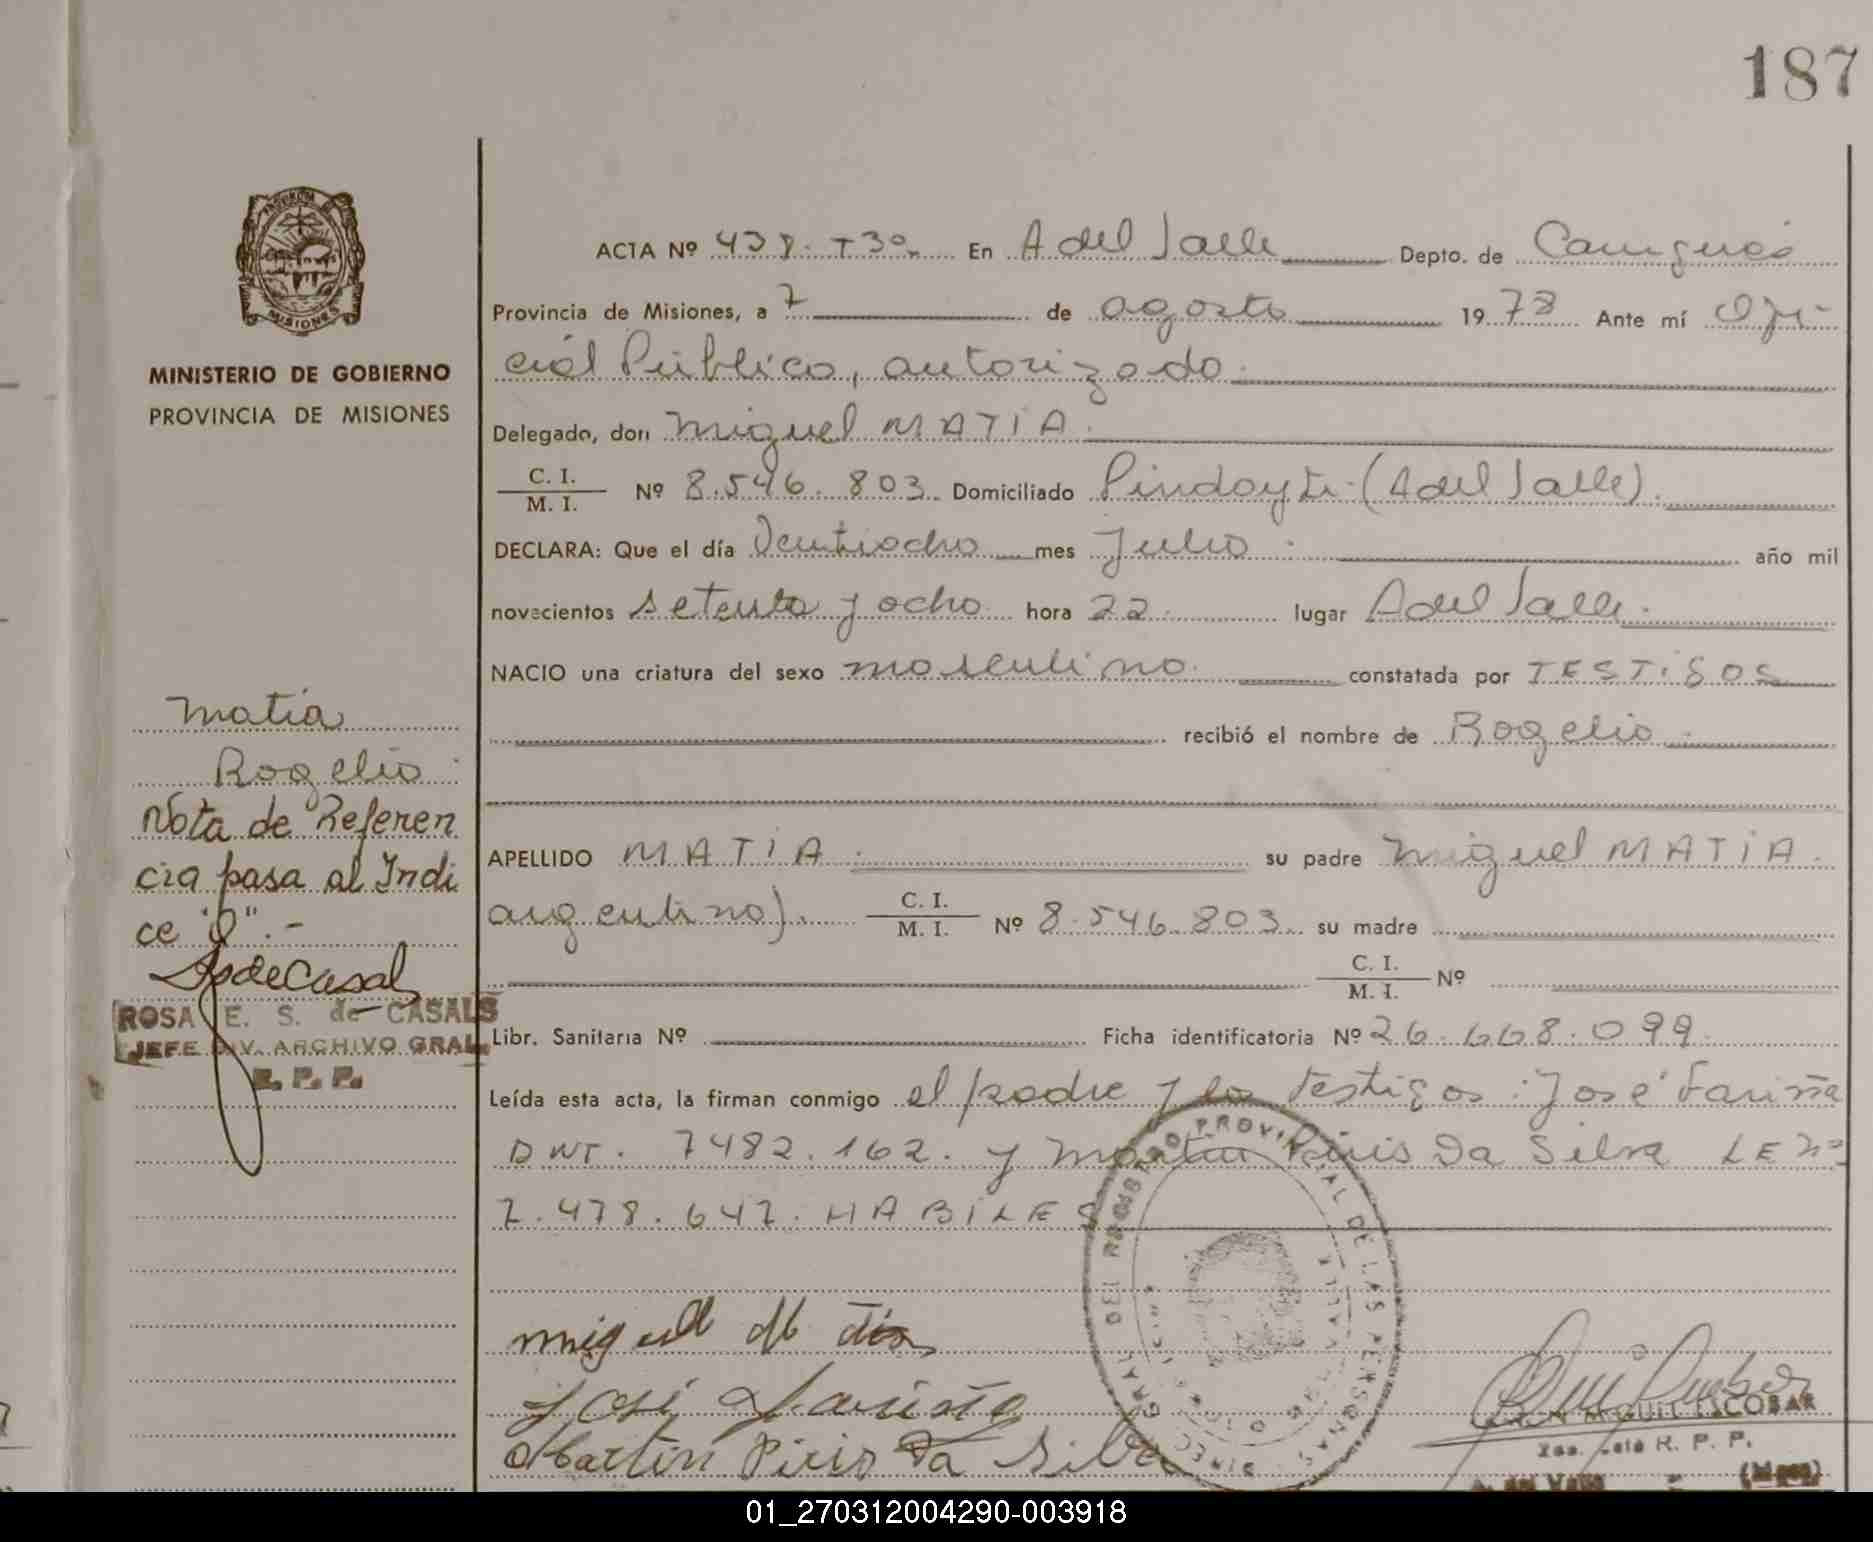 187
PROVINCIA DE
MISIONES
MINISTERIO DE GOBIERNO
PROVINCIA DE MISIONES
ACTA Nº 438. T3º. En A del Valle Depto. de Cainguás
Provincia de Misiones, a 7 de agosto 1978 Ante mí Ofi-
cial Público, autorizado.
Delegado, don Miguel MATIA.
C. I.
M. I. Nº 8.546.803. Domiciliado Pindayti (A del Valle).
DECLARA: Que el día Ventiocho mes Julio. año mil
novecientos setenta y ocho hora 22. lugar A del Valle.
NACIO una criatura del sexo masculino. constatada por TESTIGOS
recibió el nombre de Rogelio.
APELLIDO MATIA. su padre Miguel MATIA.
argentino). C. I.
M. I. Nº 8.546.803. su madre
C. I.
M. I. Nº
Libr. Sanitaria Nº Ficha identificatoria Nº 26.668.099.
Leída esta acta, la firman conmigo el padre y los testigos: José Fariña
DNI. 7482.162. y Martin Piris Da Silva LE nº
7.478.647. HABILES
Matia
Rogelio
Nota de Referen
cia pasa al Indi
ce "O".-
ROSA E. S. de CASALS
JEFE DIV. ARCHIVO GRAL.
R. P. P.
José Fariña
Martin Piris Da Silva
REGISTRO PROVINCIAL DE LAS PERSONAS
MIGUEL ESCOBAR
R. P. P.
01_270312004290-003918